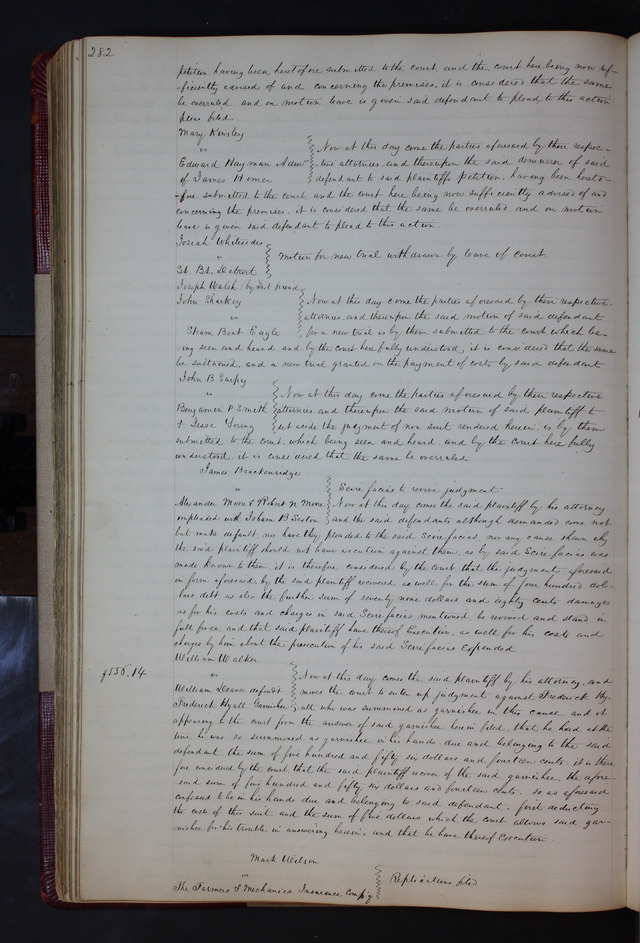 282
petition having been heretofore submitted to the court, and the court here being now suf-
-ficiently advised of and concerning the premises, it is considered that the same
be overruled and on motion leave is given said defendant to plead to this action
pleas filed.
Mary Kinsley
vs
Edward Hayman Admr
of James Homer
Now at this day come the parties aforesaid by their respec-
-tive attornies, and thereupon the said demurrer of said
defendant to said plaintiffs petition, having been hereto-
-fore submitted to the court and the court here being now sufficiently advised of and
concerning the premises, it is considered that the same be overruled, and on motion
leave is given said defendant to plead to this action.
Josiah Whitesides
vs
St. Bt. Detroit
Motion for new trial withdrawn by leave of court.
Joseph Walsh by next friend
John Sharkey
vs
Steam Boat Eagle
Now at this day come the parties aforesaid by their respective
attornies, and thereupon the said motion of said defendant
for a new trial is by them submitted to the court which be-
-ing seen and heard and by the court here fully understood, it is considered that the same
be sustained, and a new trial granted on the payment of costs by said defendant
John B Sarpy
vs
Benjamin P. Smith
& Jesse Young
Now at this day come the parties aforesaid by their respective
attornies, and thereupon the said motion of said plaintiff to
set aside the judgment of non suit rendered herein, is by them
submitted to the court, which being seen and heard and by the Court here fully
understood, it is considered that the same be overruled
James Brackenridge
vs
Alexander Moore & Robert N Moore
impleaded with Isham B Sexton
Scire facias to revive judgment
Now at this day comes the said plaintiff by his attorney
and the said defendants although demanded come not
but make default, nor have they pleaded to the said Scire facias, nor any cause shown why
the said plaintiff should not have execution against them, as by said Scire facias was
made known to them, it is therefore considered by the court that the judgment aforesaid
in form aforesaid by the said plaintiff recovered as well for the sum of four hundred dol-
-lars debt, as also the further sum of seventy nine dollars and eighty cents damages
as for his costs and charges in said Scire facias mentioned be revived and stand in
full force and that said plaintiff have thereof Execution, as well for his costs and
charges by him about the prosecution of his said Scire facias Expended
William Walker
$556.14
vs
William Deaver defendt
Frederick Hyatt Garnishee
Now at this day comes the said plaintiff by his attorney, and
moves the court to enter up judgment against Frederick Hy-
-att who was summoned as garnishee in this cause, and it
appearing to the court from the answer of said garnishee herein filed, that he had at the
time he was so summoned as garnishee in his hands due and belonging to the said
defendant the sum of five hundred and fifty six dollars and fourteen cents, it is there
fore considered by the court that the said plaintiff recover of the said garnishee the afore-
said sum of five hundred and fifty six dollars and fourteen cents, so as aforesaid
confessed to be in his hands due and belonging to said defendant, first deducting
the costs of this suit and the sum of five dollars which the court allows said gar-
nishee for his trouble in answering herein, and that he have thereof Execution.
Mark Wilson
vs
The Farmers & Mechanics Insurance Compy
Replications filed